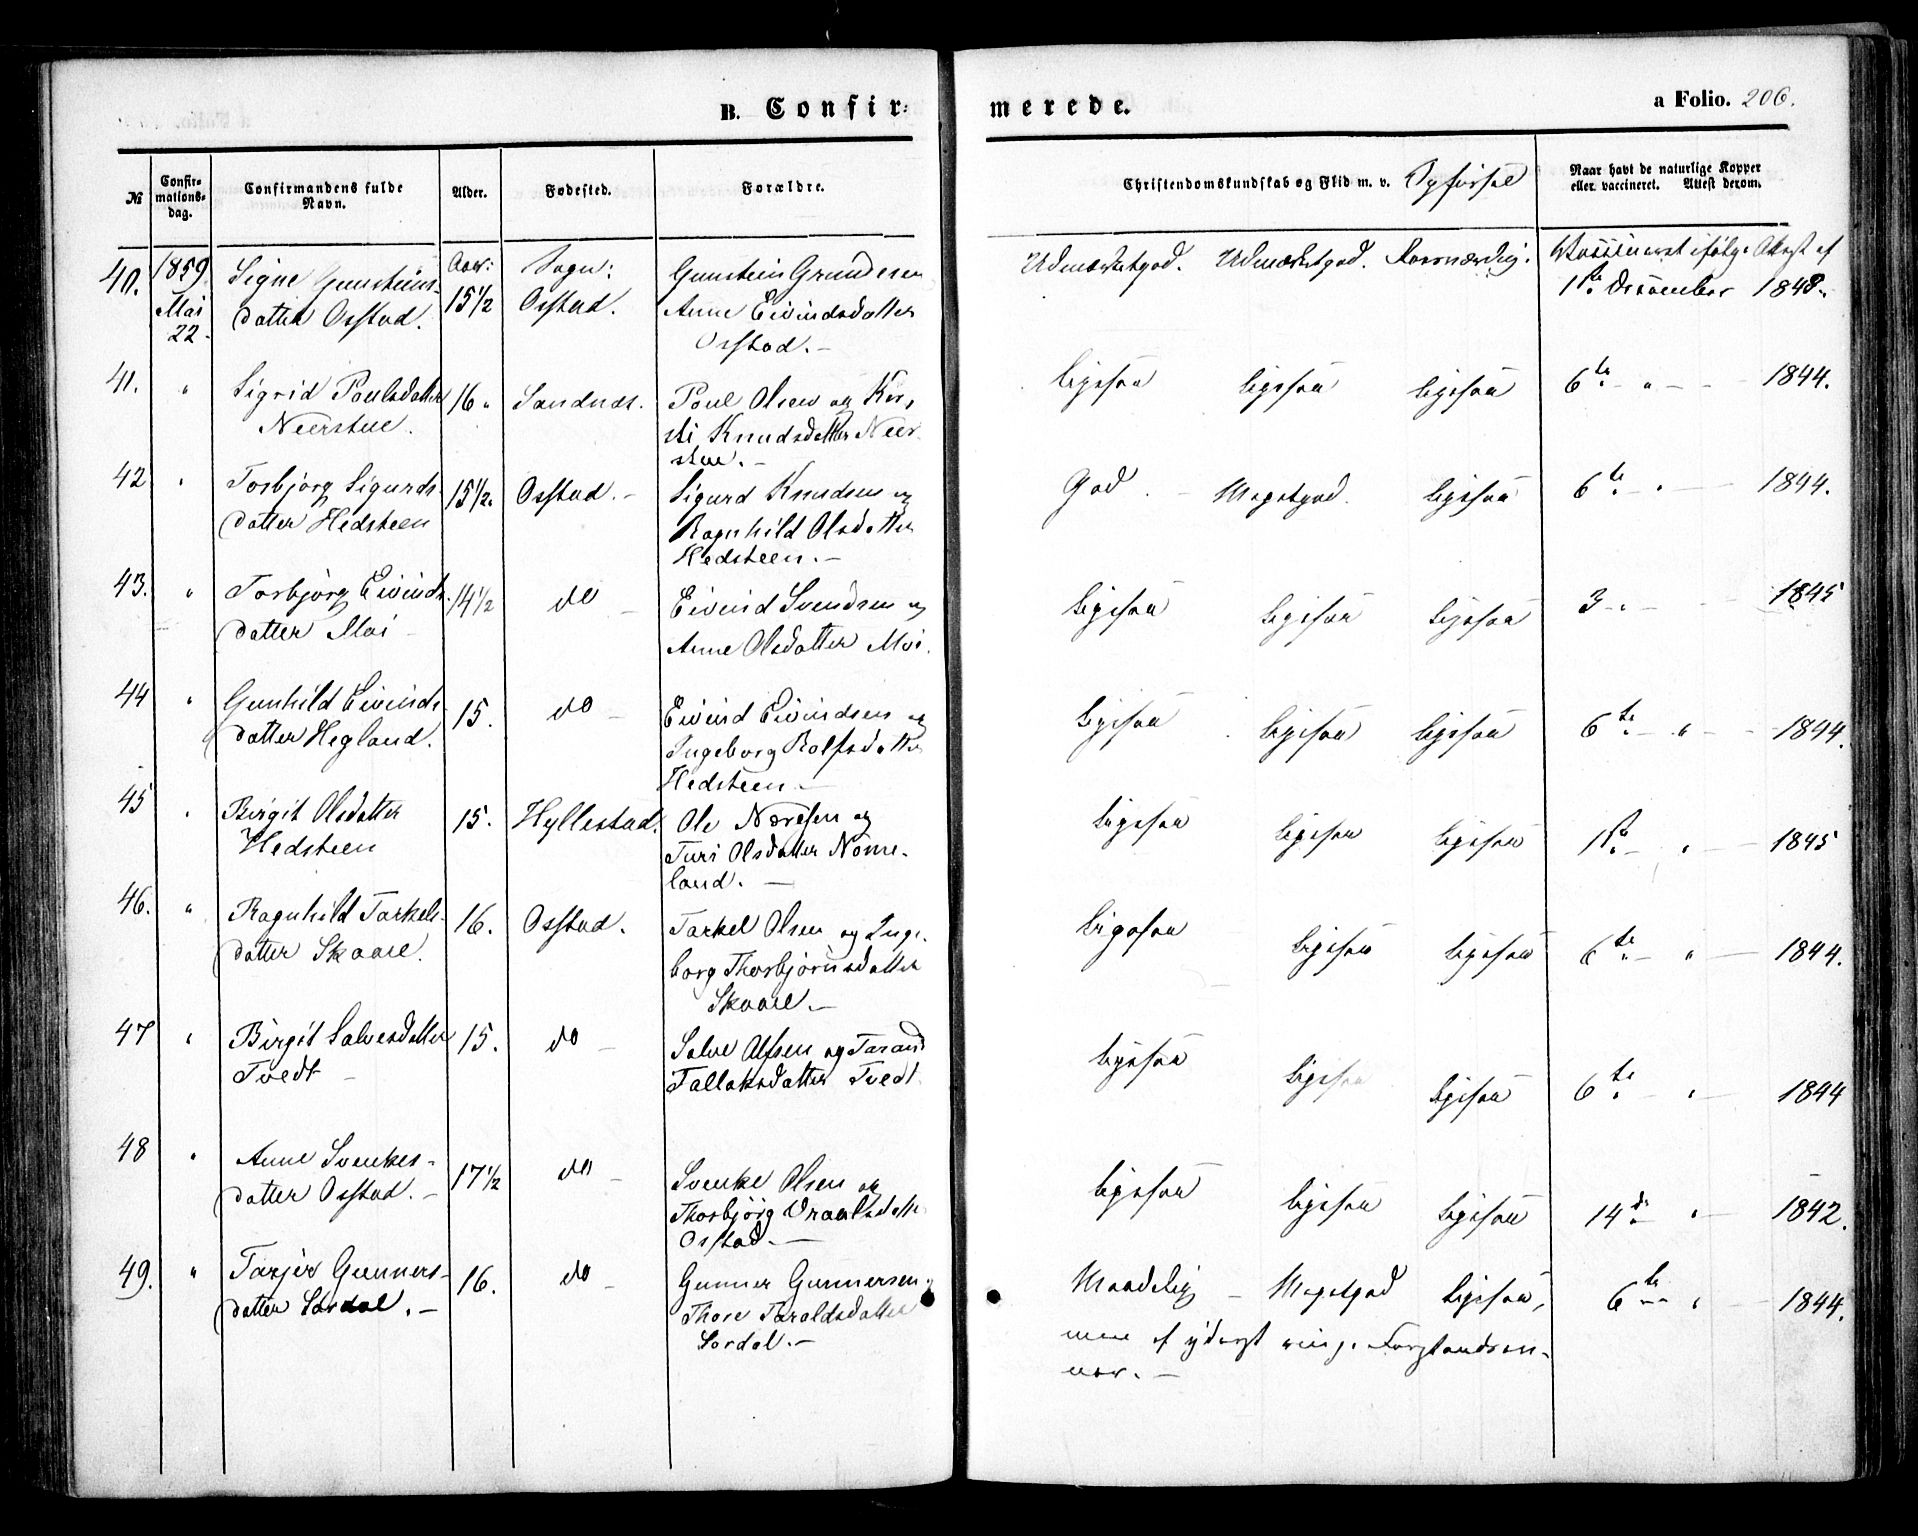 B. Confir=
merede.
a Folio. 206.
№
Confir=
mations=
dag.
Confirmandens fulde
Navn.
Alder.
Fødested.
Forældre.
Christendomskundskab og Flid m. v. Opførsel
Naar havt de naturlige Kopper
eller vaccineret. Attest derom.
40. 1859 Mai 22. Signe Gunsteins-
datter Osstad.
Aar: 15 1/2
Sogn: Osstad.
Gunstein
Anne Eivindsdatter
Osstad.-
Udmærketgod. Udmærketgod.
Vaccineret ifølge Attest af
1ste December 1843.
41. " Sigrid Poulsdatter
Neerstue.
16. Sandnes.
Poul Olsen og Kir-
sti Knudsdatter Neer-
stue.-
ligesaa ligesaa ligesaa 6te - " - 1844.
42. " Torbjørg Sigurds-
datter Hedsteen
15 1/2. Osstad.-
Sigurd Knudsen og
Ragnhild Olsdatter
Hedsteen.-
God. - Megetgod. ligesaa 6te - " - 1844.
43. " Torbjørg Eivinds-
datter Moi -
14 1/2 do -
Eivind Svendsen og
Anne Olsdatter Moi.
ligesaa ligesaa ligesaa 3 - " - 1845
44 " Gunhild Eivinds-
datter Hegland.
15. do -
Eivind Eivindsen og
Ingeborg Rolfsdatter
Hedsteen -
ligesaa ligesaa ligesaa 6te - " - 1844.
45 " Birgit Olsdatter
Hedsteen
15. Hyllestad.
Ole og
Turi Olsdatter Nome-
land. -
ligesaa ligesaa ligesaa 1ste - " - 1845
46. " Ragnhild Tarkels-
datter Skaare.
16. Osstad.
Tarkel Olsen og Inge-
borg Thorbjørnsdatter
Skaare.-
ligesaa ligesaa ligesaa 6te - " - 1844.
47 " Birgit Salvesdatter
Tvedt -
15. do -
Salve Alfsen og Tarand
Tallaksdatter Tvedt
ligesaa ligesaa ligesaa 6te - " - 1844
48 " Anne Svenkes-
datter Osstad.-
17 1/2 do -
Svenke Olsen og
Thorbjørg Vraalsdatter
Osstad.-
ligesaa ligesaa ligesaa 14de - " - 1842.
49. " Tarjer Gunners-
datter Sordal.-
16. do -
Gunner Gunnersen og
Thore Taraldsdatter
Sordal.-
Maadelig - Megetgod ligesaa, 6te - " - 1844.
men af yderst ringe Forstandsev-
ner.-